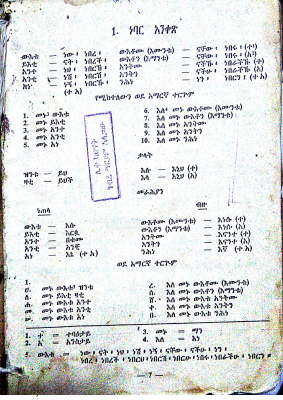 1. ነባር አንቀጽ
ውእቱ — ነው ፣ ነበረ ፣
ይእቲ — ናት ፣ ነበረች ፣
አንተ — ነህ ፣ ነበርህ ፣
አንቲ — ነሽ ፣ ነበርሽ ፣
አነ — ነኝ ፣ ነበርሁ ፣
(ተ አ)
ውእቶሙ (እሙንቱ) — ናቸው ፣ ነበሩ ፣ (ተ)
ውእቶን (እማንቱ) — ናቸው ፣ ነበሩ ፣ (አ)
አንትሙ — ናችሁ ፣ ነበራችሁ (ተ)
አንትን — ናችሁ ፣ ነበራችሁ (አ)
ንሕነ — ነን ፣ ነበርን ፣ (ተ አ)
የሚከተለውን ወደ አማርኛ ተርጉም
1. መኑ ውእቱ
2. መኑ ይእቲ
3. መኑ አንተ
4. መኑ አንቲ
5. መኑ አነ
6. እለ መኑ ውእቶሙ (እሙንቱ)
7. እለ መኑ ውእቶን (እማንቱ)
8. እለ መኑ አንትሙ
9. እለ መኑ አንትን
10. እለ መኑ ንሕነ
ቃላት
ዝንቱ — ይህ
ዛቲ — ይህች
እሉ — እነዚህ (ተ)
እላ — እነዚህ (አ)
መራሕያን
ነጠላ
ብዙ
ውእቱ — እሱ
ይእቲ — እርሷ
አንተ — አንተ
አንቲ — አንቺ
አነ — እኔ (ተ አ)
ውእቶሙ (እሙንቱ) — እነሱ (ተ)
ውእቶን (እማንቱ) — እነሱ (አ)
አንትሙ — እናንተ (ተ)
አንትን — እናንተ (አ)
ንሕነ — እኛ (ተ አ)
ወደ አማርኛ ተርጉም
መኑ ውእቱ ዝንቱ
መኑ ይእቲ ዛቲ
መኑ ውእቱ አንተ
መኑ ውእቱ አንቲ
መኑ ውእቱ አነ
እለ መኑ ውእቶሙ (እሙንቱ)
እለ መኑ ውእቶን (እማንቱ)
እለ መኑ ውእቱ አንትሙ
እለ መኑ ውእቱ አንትን
እለ መኑ ውእቱ ንሕነ
1. ተ — ተባዕታይ
2. አ — አንስታይ
3. መኑ — ማን
4. እለ — እነ
5. ውእቱ — ነው ፣ ናት ፣ ነህ ፣ ነሽ ፣ ነኝ ፣ ናቸው ፣ ናችሁ ፣ ነን ፣
ነበረ ፣ ነበረች ፣ ነበርህ ፣ ነበርሽ ፣ ነበርሁ ፣ ነበሩ ፣ ነበራችሁ ፣ ነበርን ።
— 7 —